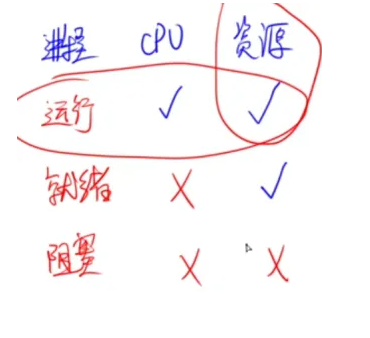 进程 CPU 资源
运行 ✓ ✓
就绪 X ✓
阻塞 X X